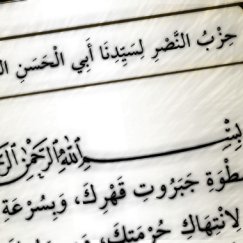 حِزْبُ النَّصْرِ لِسَيِّدِنَا أَبِي الْحَسَنِ
بِسْمِ اللهِ الرَّحْمٰنِ
جَبَرُوتِ قَهْرِكَ، وَبِسُرْعَةِ
لِانْتِهَاكِ حُرْمَتِكَ،